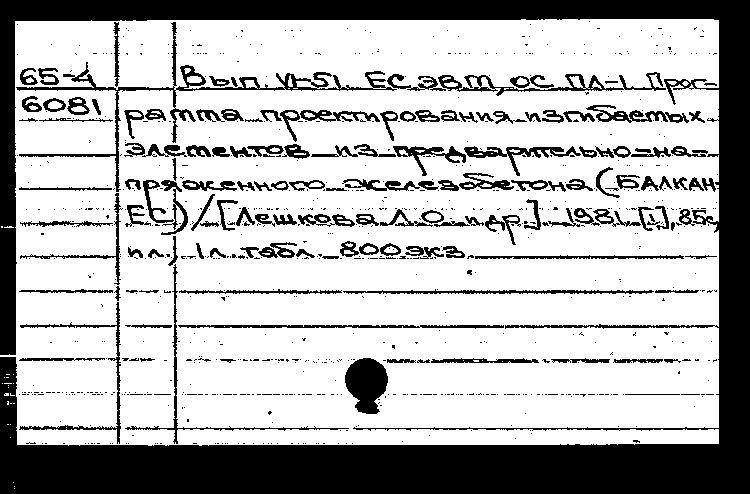 65-4 Вып. VI-51. ЕС ЭВМ, ОС ПЛ-1 Прог-
6081 рамма проектирования изгибаемых
элементов из предварительно-на-
пряженного железобетона (БАЛКАН-
ЕС) / [Лешкова Л.О. и др.] 1981. [1], 85с,
ил., 1л. табл. 800 экз.